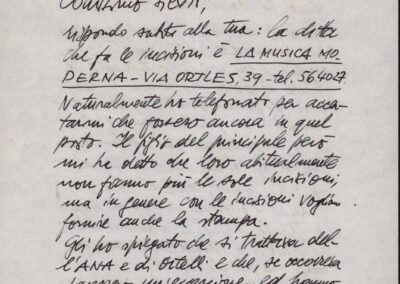 rispondo subito alla tua: la ditta
che fa le incisioni è LA MUSICA MO-
DERNA - VIA ORTLES, 39 - tel. 564027.
Naturalmente ho telefonato per accer-
tarmi che fossero ancora in quel
posto. Il figlio del principale però
mi ha detto che loro abitualmente
non fanno più le sole incisioni,
ma in genere con le incisioni vogliono
fornire anche la stampa.
Gli ho spiegato che si trattava del-
l'ANA e di Ortelli e che, se occorreva